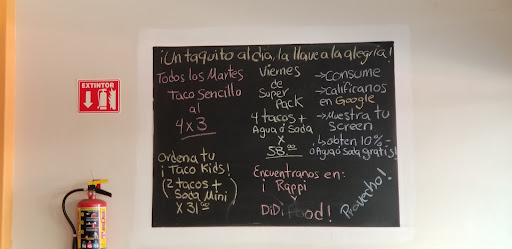 EXTINTOR
¡Un taquito al día, la llave a la alegría!
Todos los Martes
Taco Sencillo
al
4x3
Viernes
de
Super
Pack
4 tacos +
Agua ó Soda
x
58.00
→Consume
→Califícanos
en Google
→Muestra tu
Screen
↳obten 10%-
o Agua ó Soda gratis!
Ordena tu
¡Taco Kids!
(2 tacos +
Soda Mini
x 31.00
Encuentranos en:
¡Rappi
y
DiDi Food!
Provecho!